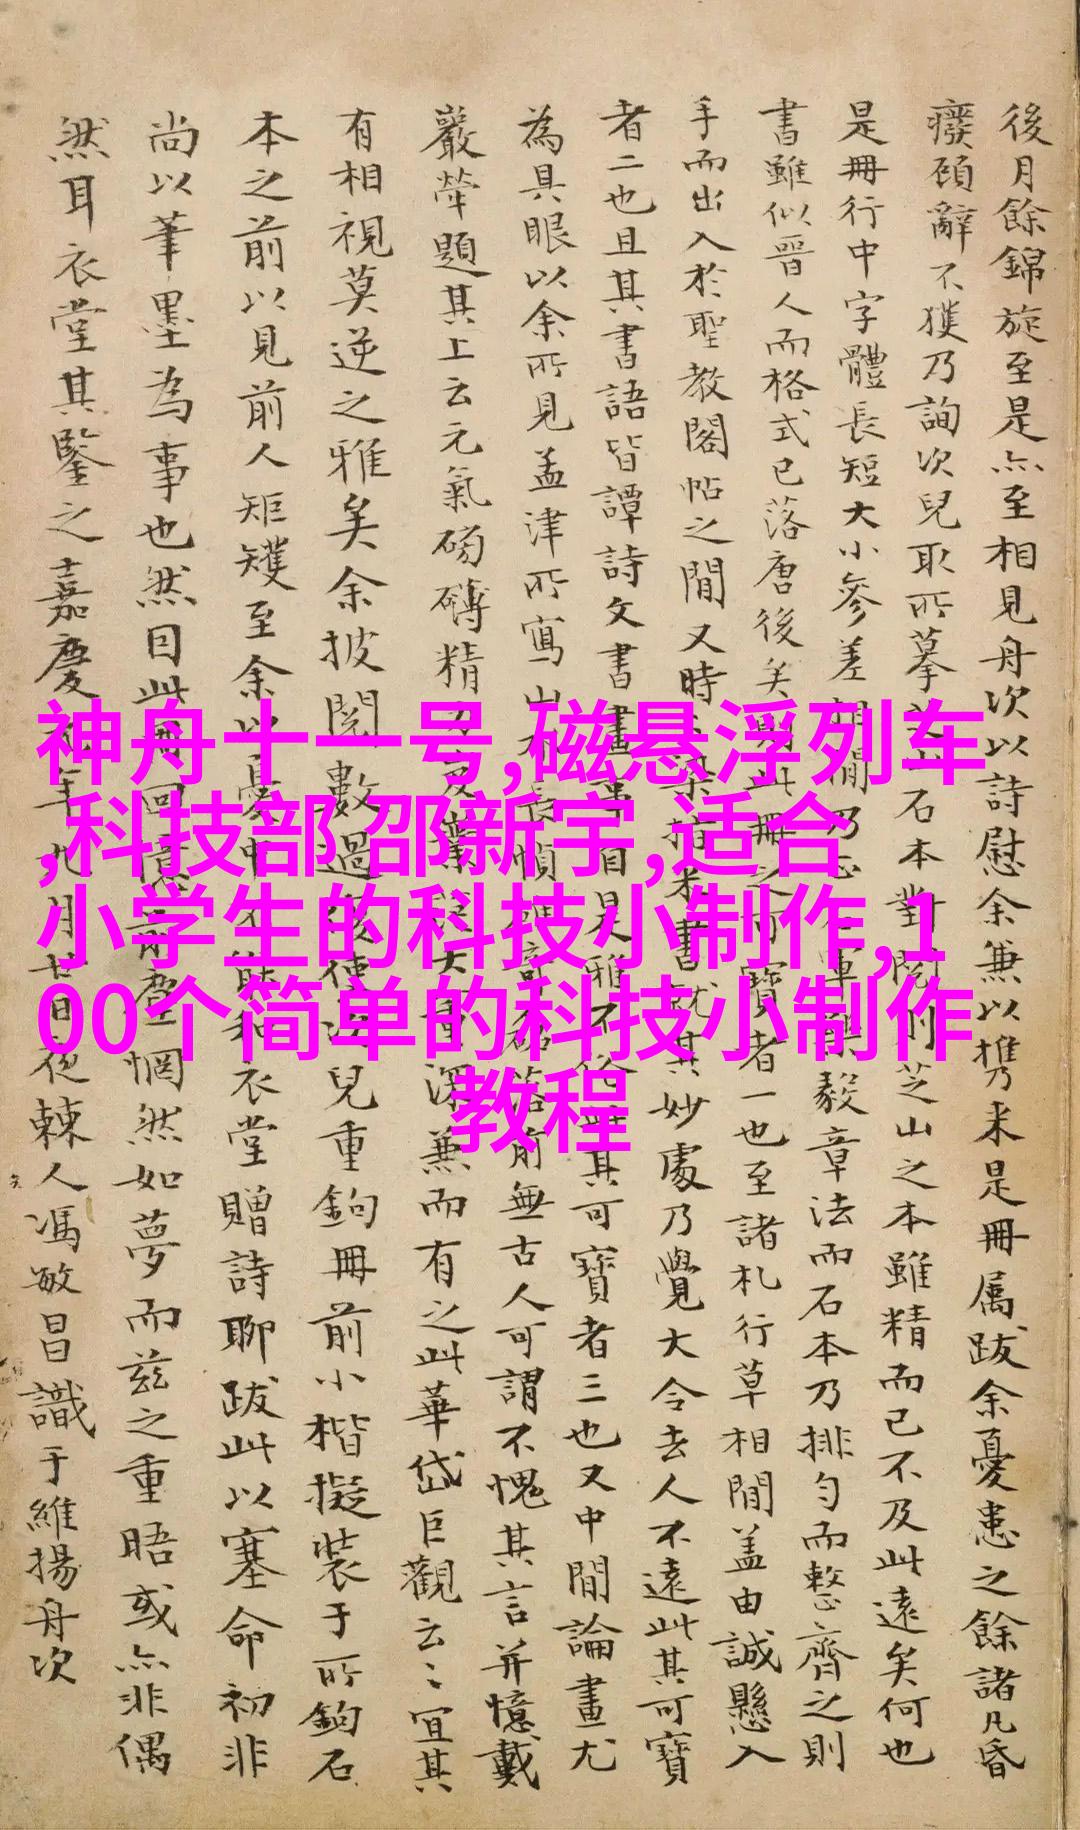 後月餘錦旋至是亦至相見舟次以詩慰余兼以携来是冊属跋余憂患之餘諸凡昏
癈頋辭不獲乃詢次兒取所摹石本對閱則芝山之本雖精而已不及此遠矣何也
是冊行中字體長短大小參差相間乃毅章法而石本乃排勻而整齊之則
書雖似晋人而格式已落唐後矣此冊之可寶者一也至諸札行草相間盖由誠懸入
手而出入於聖教閣帖之間又時書就其妙處乃覺大令去人不遠此其可寶
者二也且其書語皆譚詩文書畫事自是雅不俗此其可寶者三也又中間論畫尤
為具眼以余所見孟津所寫山水長幀磊落前無古人可謂不愧其言并憶戴
嚴犖題其上云元氣磅礴精力大重深兼而有之此華岱巨觀云云宜其
有相視莫逆之雅矣余披閱數過後使次兒重鉤冊前小楷擬裝于所鉤石
本之前以見前人矩矱至余以憂中不能和衣堂贈詩聊跋此以塞命初非
尚以筆墨為事也然因此冊回憶前塵惘然如夢而兹之重晤或亦非偶
然耳衣堂其鑒之嘉慶元年九月十日夜棘人馮敏昌識于維揚舟次
神舟十一号,磁悬浮列车
,科技部 邵新宇,适合
小学生的科技小制作,1
00个简单的科技小制作
教程